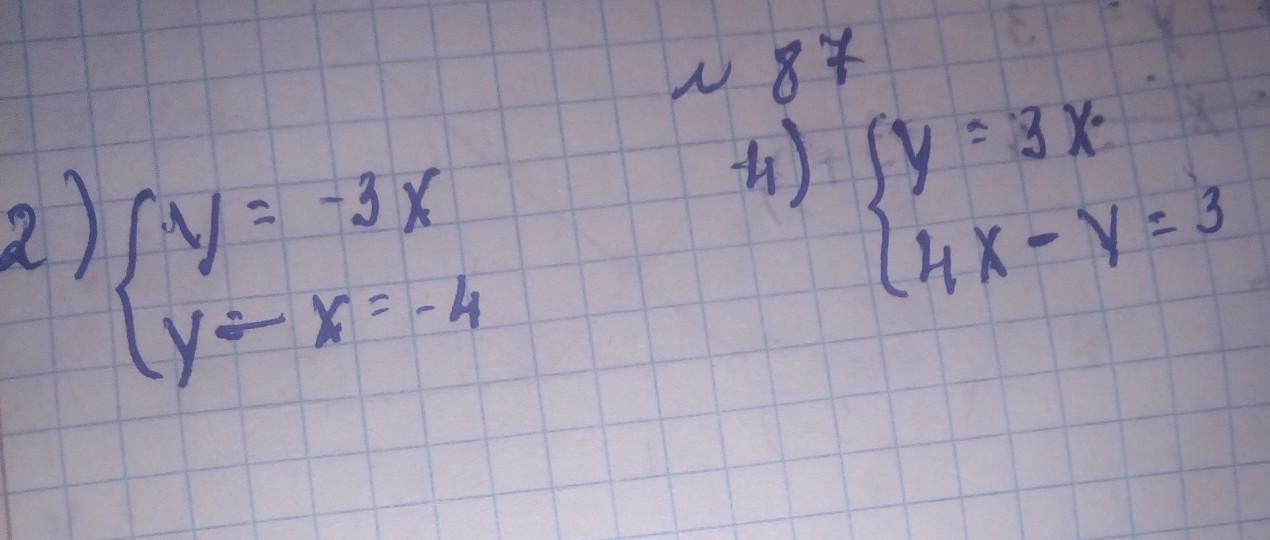 № 87
2) { y = -3x
y - x = -4
4) { y = 3x
4x - y = 3